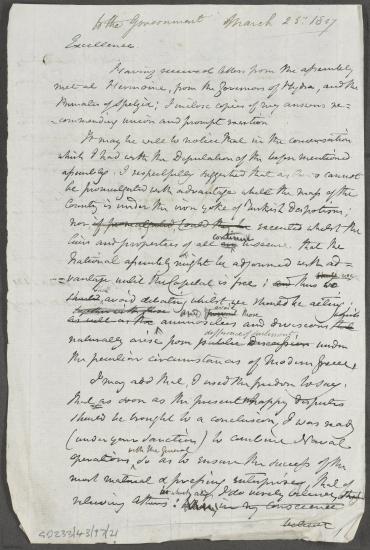 to the Government March 25th 1827
Excellence
Having received letters from the assembly
met at Hermione, from the Governors of Hydra, and the
Primates of Spetzia; I inclose copies of my answers re-
-commending union and prompt exertion
It may be well to notice that in the conversation
which I had with the Deputation of the before mentioned
assembly, I respectfully suggested that as laws cannot
be promulgated with advantage whilst the mass of the
Country is under the iron yoke of Turkish Despotism;
nor if promulgated could the be executed whilst the
lives and properties of all continue insecure, that the
National assembly might be adjourned with ad-
-vantage until the Capital is free; and thus we
should avoid debating whilst we should be acting;
and avoid those
as well as the animosities and divisions that
difference of sentiment
naturally arise from public Discussion under
the peculiar circumstances of Modern Greece.
I may add that, I used the freedom to say,
that as soon as the present unhappy disputes
should be brought to a conclusion, I was ready
(under your sanction) to combine Naval
with the General
operations so as to ensure the success of the
most natural & pressing enterprise, that of
relieving Athens: I do verily believe
in my conscience
GD233/43/97/2